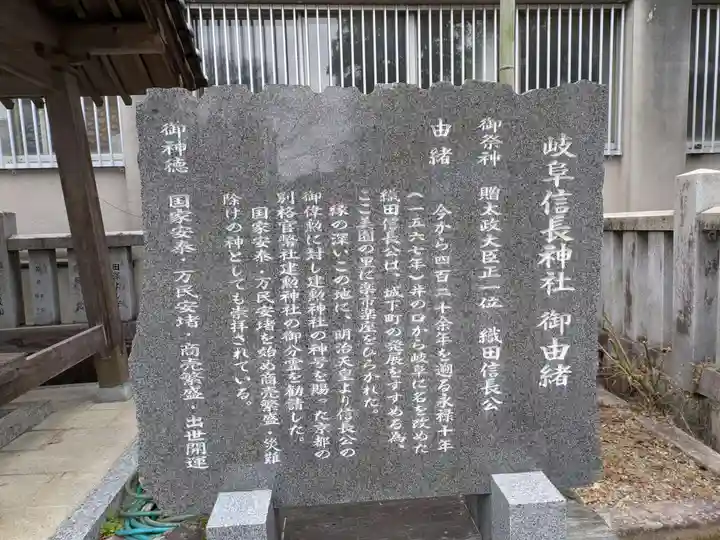 岐阜信長神社 御由緒
御祭神 贈太政大臣正一位 織田信長公
由緒
今から四百二十余年を遡る永禄十年
(一五六七年)井の口から岐阜に名を改めた
織田信長公は、城下町の発展をすすめる為、
ここ美園の里に楽市楽座をひらかれた。
縁の深いこの地に、明治天皇より信長公の
御偉勲に対し建勲神社の神号を賜った京都の
別格官幣社建勲神社の御分霊を勧請した。
国家安泰・万民安堵を始め商売繁盛・災難
除けの神としても崇拝されている。
御神徳 国家安泰・万民安堵・商売繁盛・出世開運